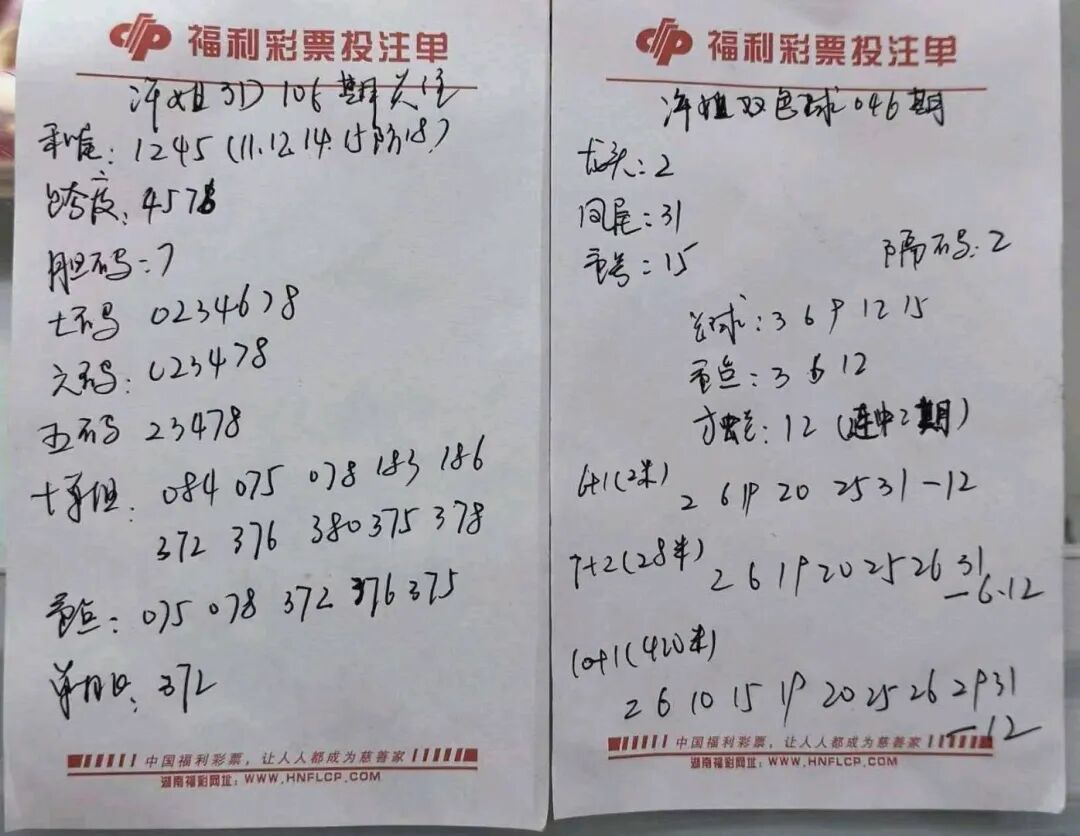 福利彩票投注单
萍姐3D106期关注
和尾:1245(11.12.14.15防18)
跨度:4578
胆码:7
七码 0234678
六码:023478
五码 23478
十单组:084 075 078 183 186
372 376 380 375 378
重点:075 078 372 376 375
单组:372
中国福利彩票,让人人都成为慈善家
湖南福彩网址:WWW.HNFLCP.COM
福利彩票投注单
萍姐双色球046期
龙头:2
凤尾:31
重号:15
隔码:2
兰球:3 6 9 12 15
重点:3 6 12
独兰:12(连中2期)
6+1(2米)
2 6 19 20 25 31-12
7+2(28米) 2 6 19 20 25 26 31
-6.12
10+1(420米)
2 6 10 15 19 20 25 26 29 31
-12
中国福利彩票,让人人都成为慈善家
湖南福彩网址:WWW.HNFLCP.COM